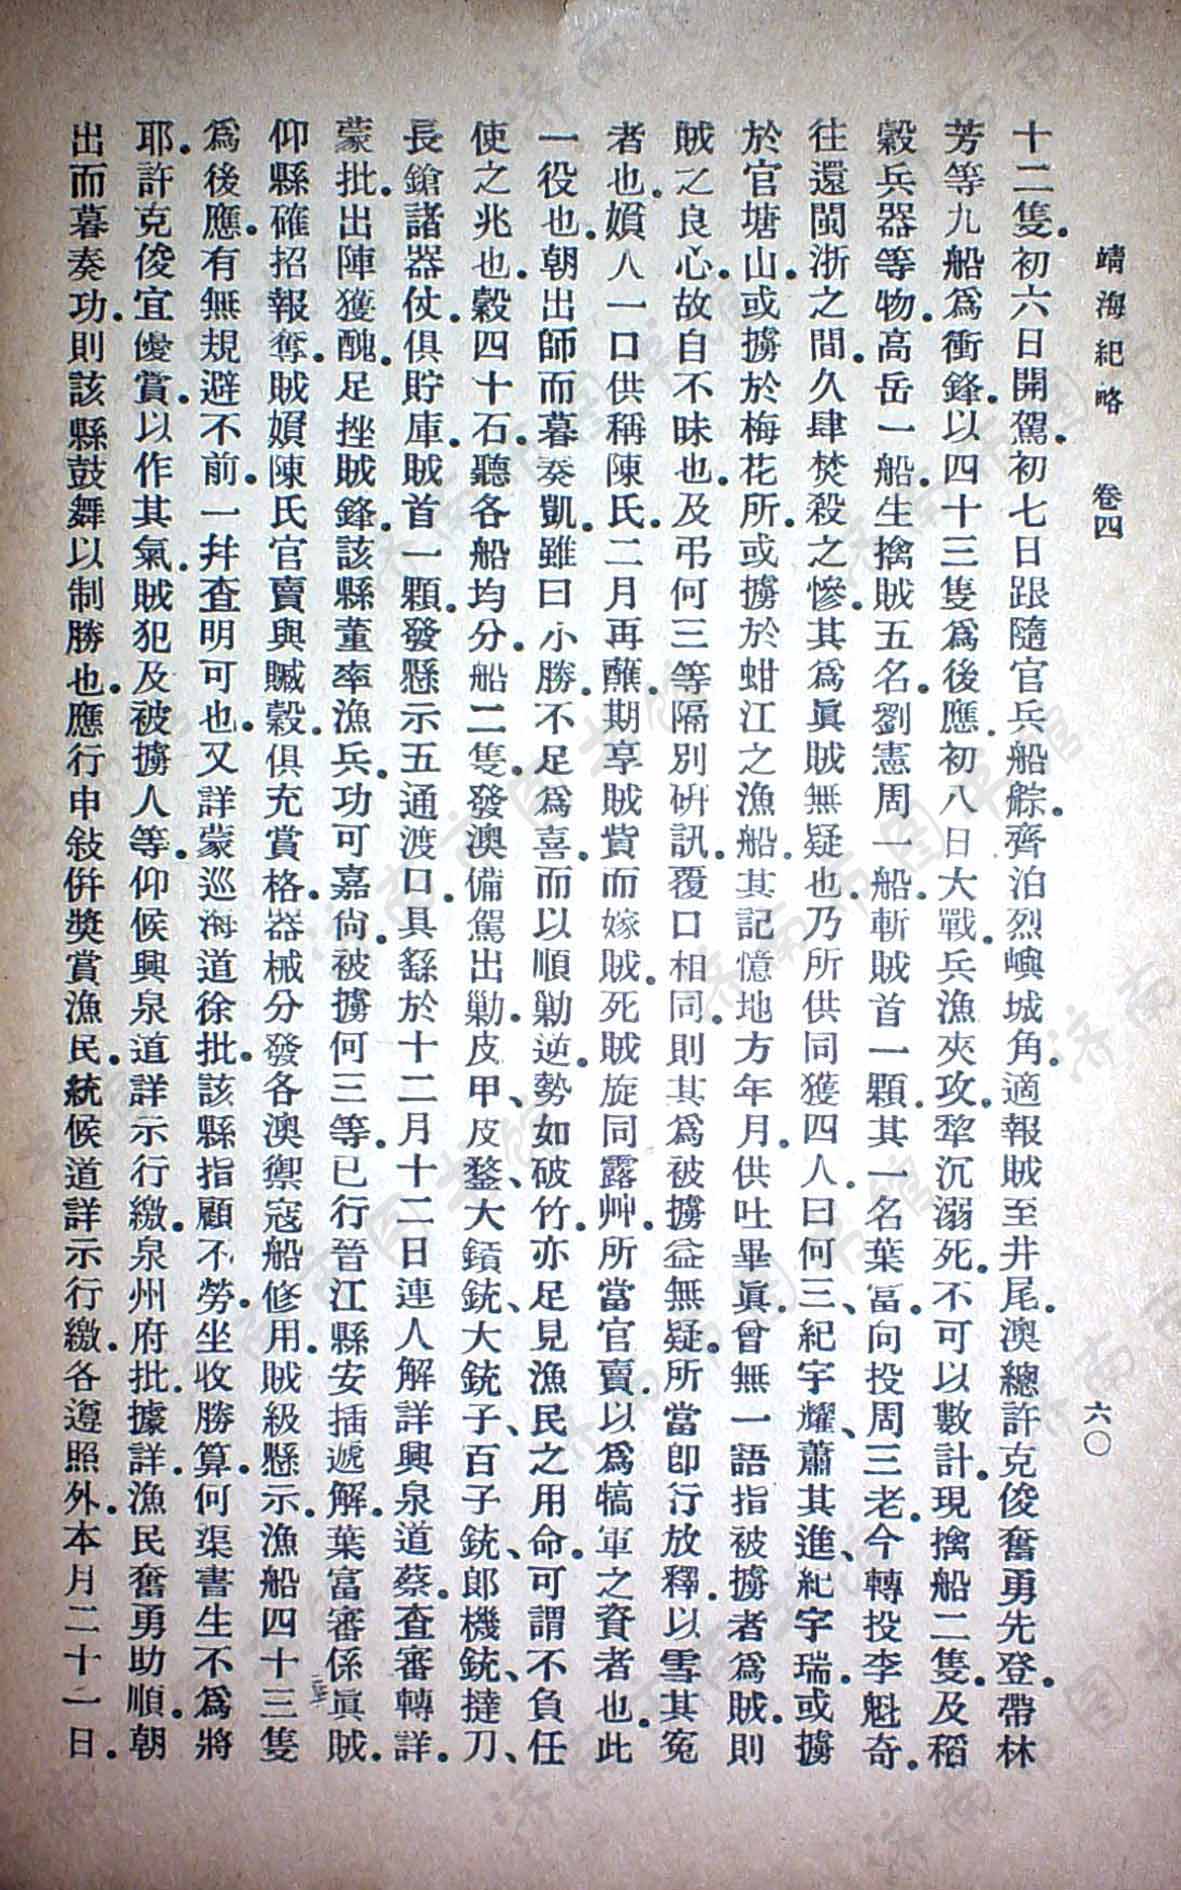 靖海紀略　卷四　六〇
十二隻。初六日開駕。初七日跟隨官兵船䑸。齊泊烈嶼城角。適報賊至井尾。澳總許克俊奮勇先登。帶林
芳等九船爲衝鋒。以四十三隻爲後應。初八日大戰。兵漁夾攻。犂沉溺死。不可以數計。現擒船二隻。及稻
穀兵器等物。高岳一船。生擒賊五名。劉憲周一船。斬賊首一顆。其一名葉富。向投周三老。今轉投李魁奇。
往還閩浙之間。久肆焚殺之慘。其爲眞賊無疑也。乃所供同獲四人。曰何三、紀宇耀、蕭其進、紀宇瑞。或擄
於官塘山。或擄於梅花所。或擄於蚶江之漁船。其記憶地方年月。供吐畢眞。曾無一語指被擄者爲賊。則
賊之良心。故自不昧也。及弔何三等隔別硏訊。覆口相同。則其爲被擄益無疑。所當卽行放釋。以雪其冤
者也。媍人一口。供稱陳氏。二月再醮。期享賊貲而嫁賊。死賊旋同露艸。所當官賣。以爲犒軍之資者也。此
一役也。朝出師而暮奏凱。雖曰小勝。不足爲喜。而以順勦逆。勢如破竹。亦足見漁民之用命。可謂不負任
使之兆也。穀四十石。聽各船均分。船二隻。發澳備駕出勦。皮甲、皮鍪、大鐼銃、大銃子、百子銃、郎機銃、撻刀、
長鎗諸器仗。俱貯庫。賊首一顆。發懸示五通渡口。具繇於十二月十二日連人解詳興泉道蔡。查審轉詳。
蒙批。出陣獲醜。足挫賊鋒。該縣董率漁兵。功可嘉尙。被擄何三等。已行晉江縣安插遞解。葉富審係眞賊。
仰縣確招報奪。賊媍陳氏官賣。與贓穀。俱充賞格。器械分發各澳禦寇船修用。賊級懸示。漁船四十三隻
爲後應。有無規避不前。一幷查明可也。又詳蒙巡海道徐批。該縣指顧不勞。坐收勝算。何渠書生不爲將
耶。許克俊宜優賞。以作其氣。賊犯及被擄人等。仰候興泉道詳示行繳。泉州府批。據詳。漁民奮勇助順。朝
出而暮奏功。則該縣鼓舞以制勝也。應行申敍倂奬賞漁民。統候道詳示行繳。各遵照外。本月二十一日。